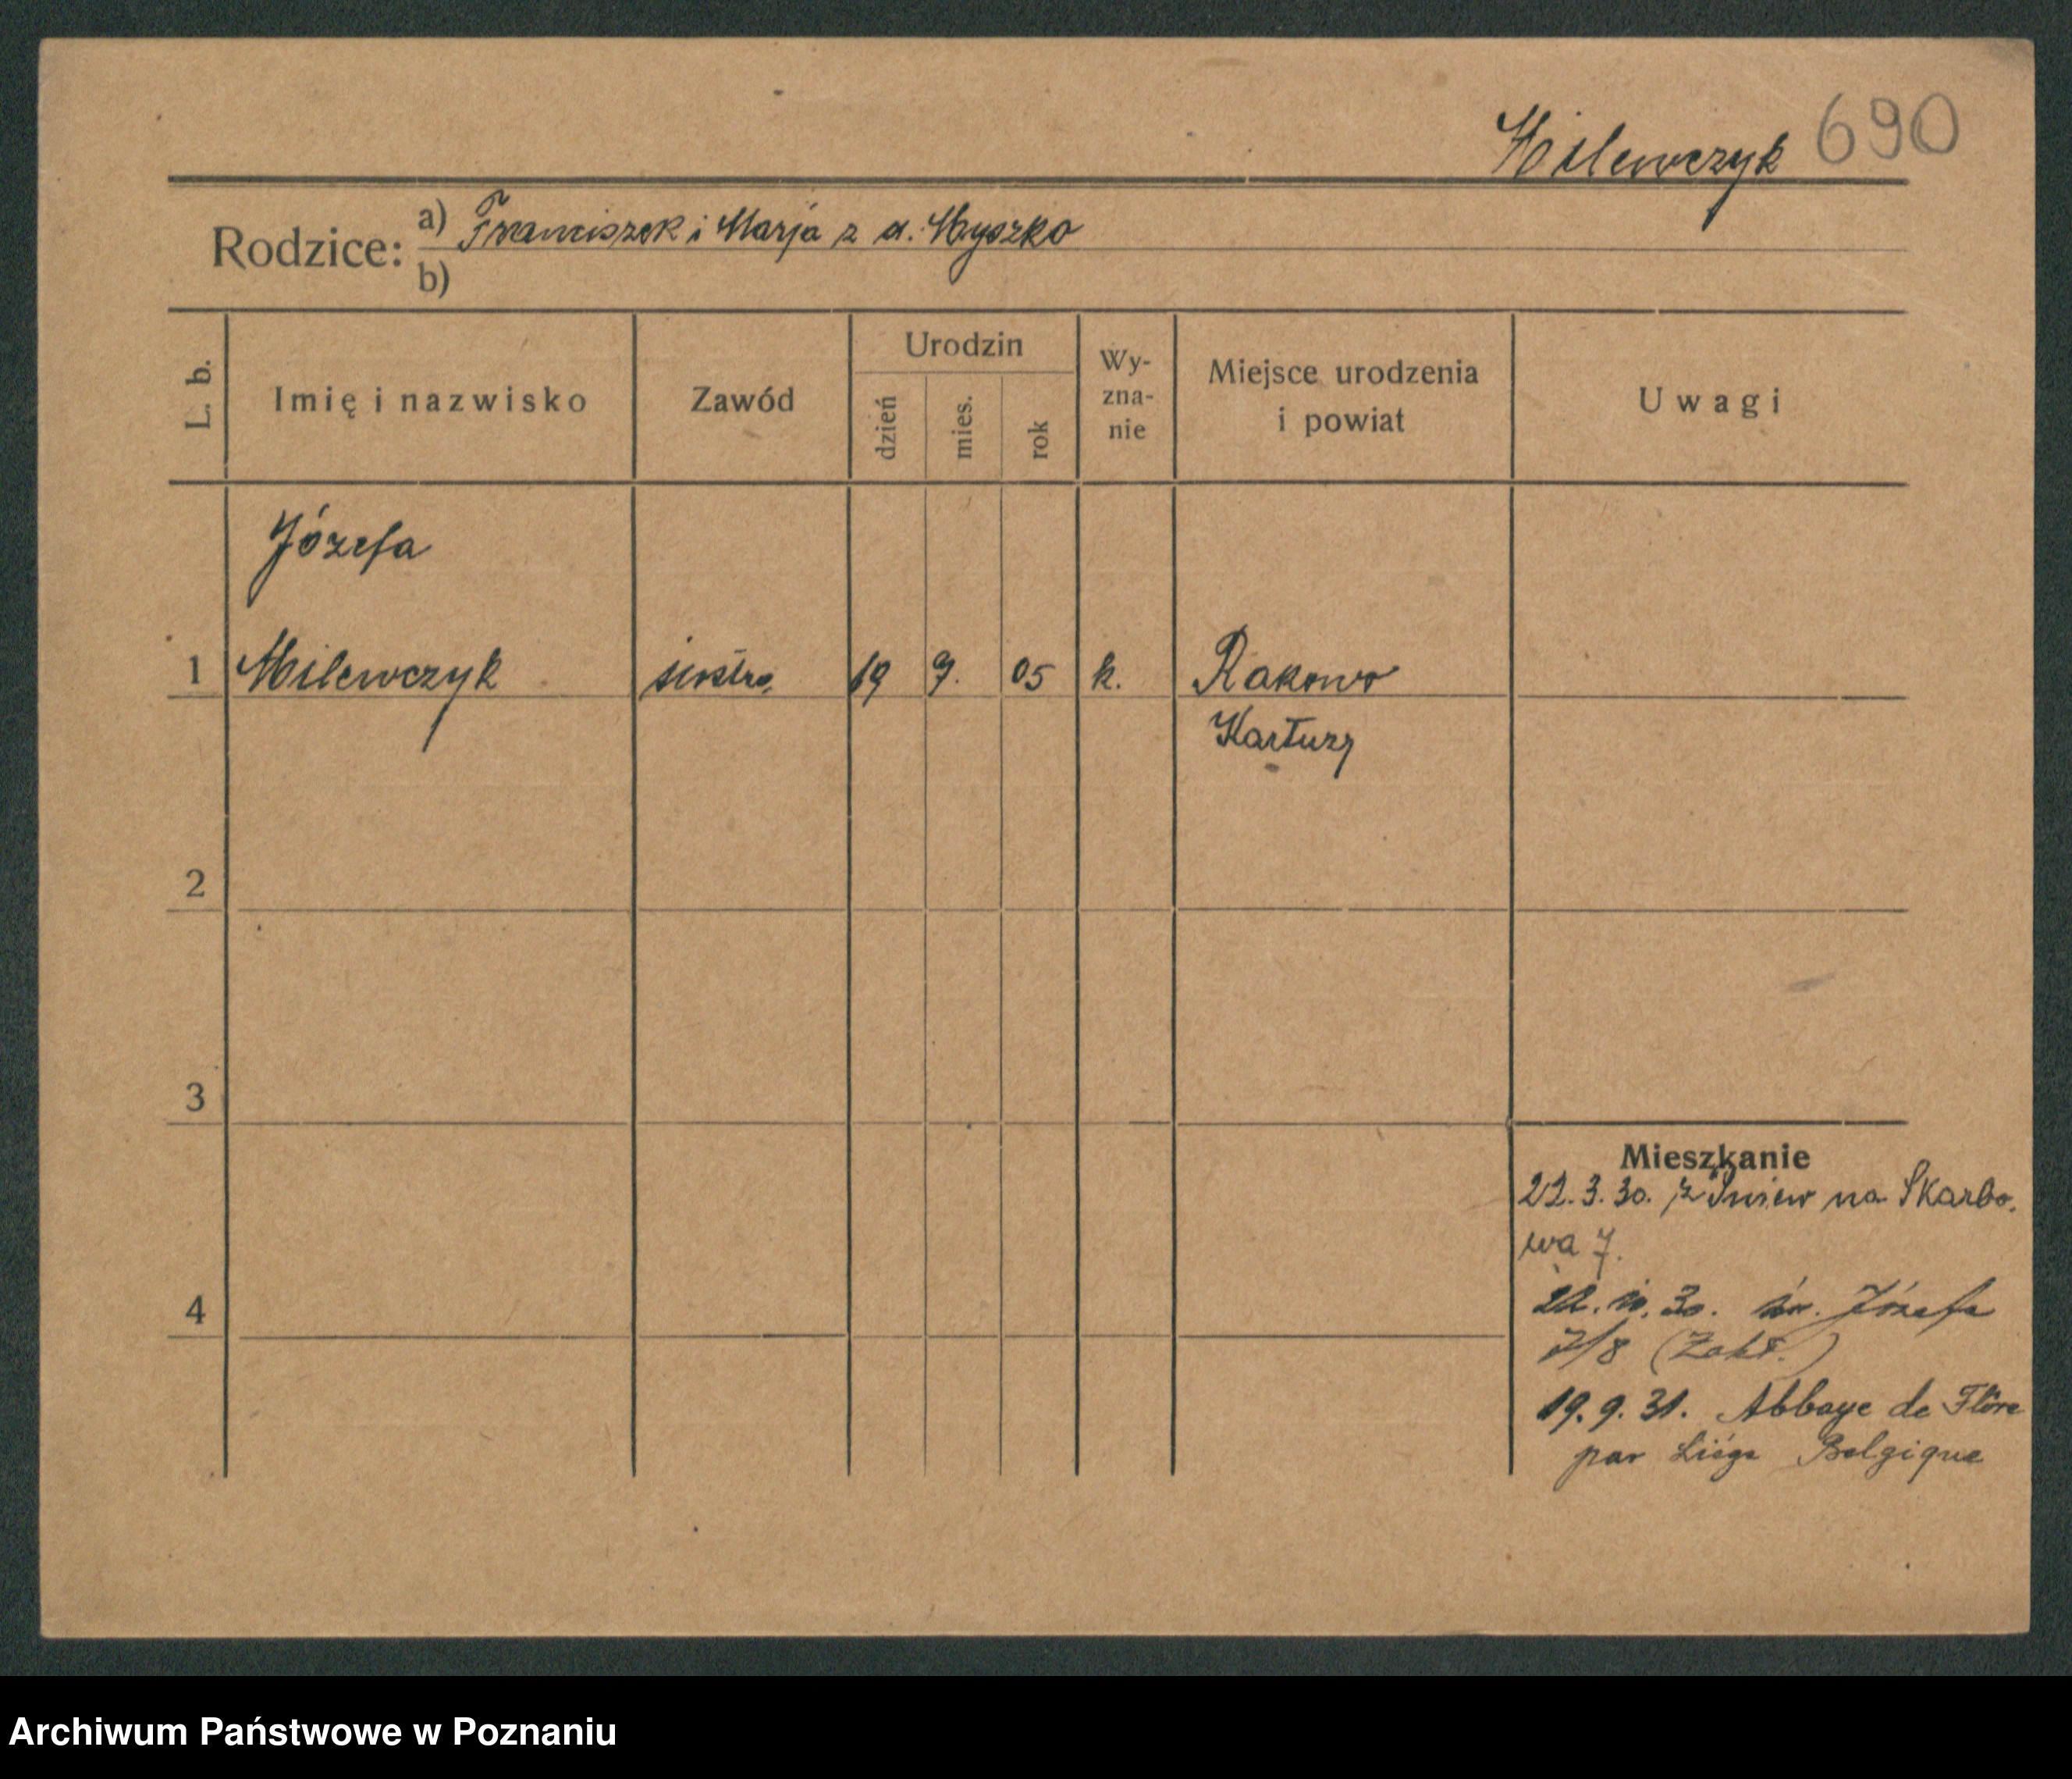 Milewczyk 690
Rodzice: a) Franciszek i Marja z d. Myszko
b)
L. b. Imię i nazwisko Zawód Urodzin dzień mies. rok Wy-zna-nie Miejsce urodzenia i powiat Uwagi
Józefa
1 Milewczyk siostra 19 9. 05 k. Rakowo
Kartuzy
2
3
4
Mieszkanie
22.3.30. z Gniew na Skarbo.
wa 7.
22. 30. św. Józefa
7/8 (Zakł.)
19.9.31. Abbaye de Flône
par Liége Belgique
Archiwum Państwowe w Poznaniu